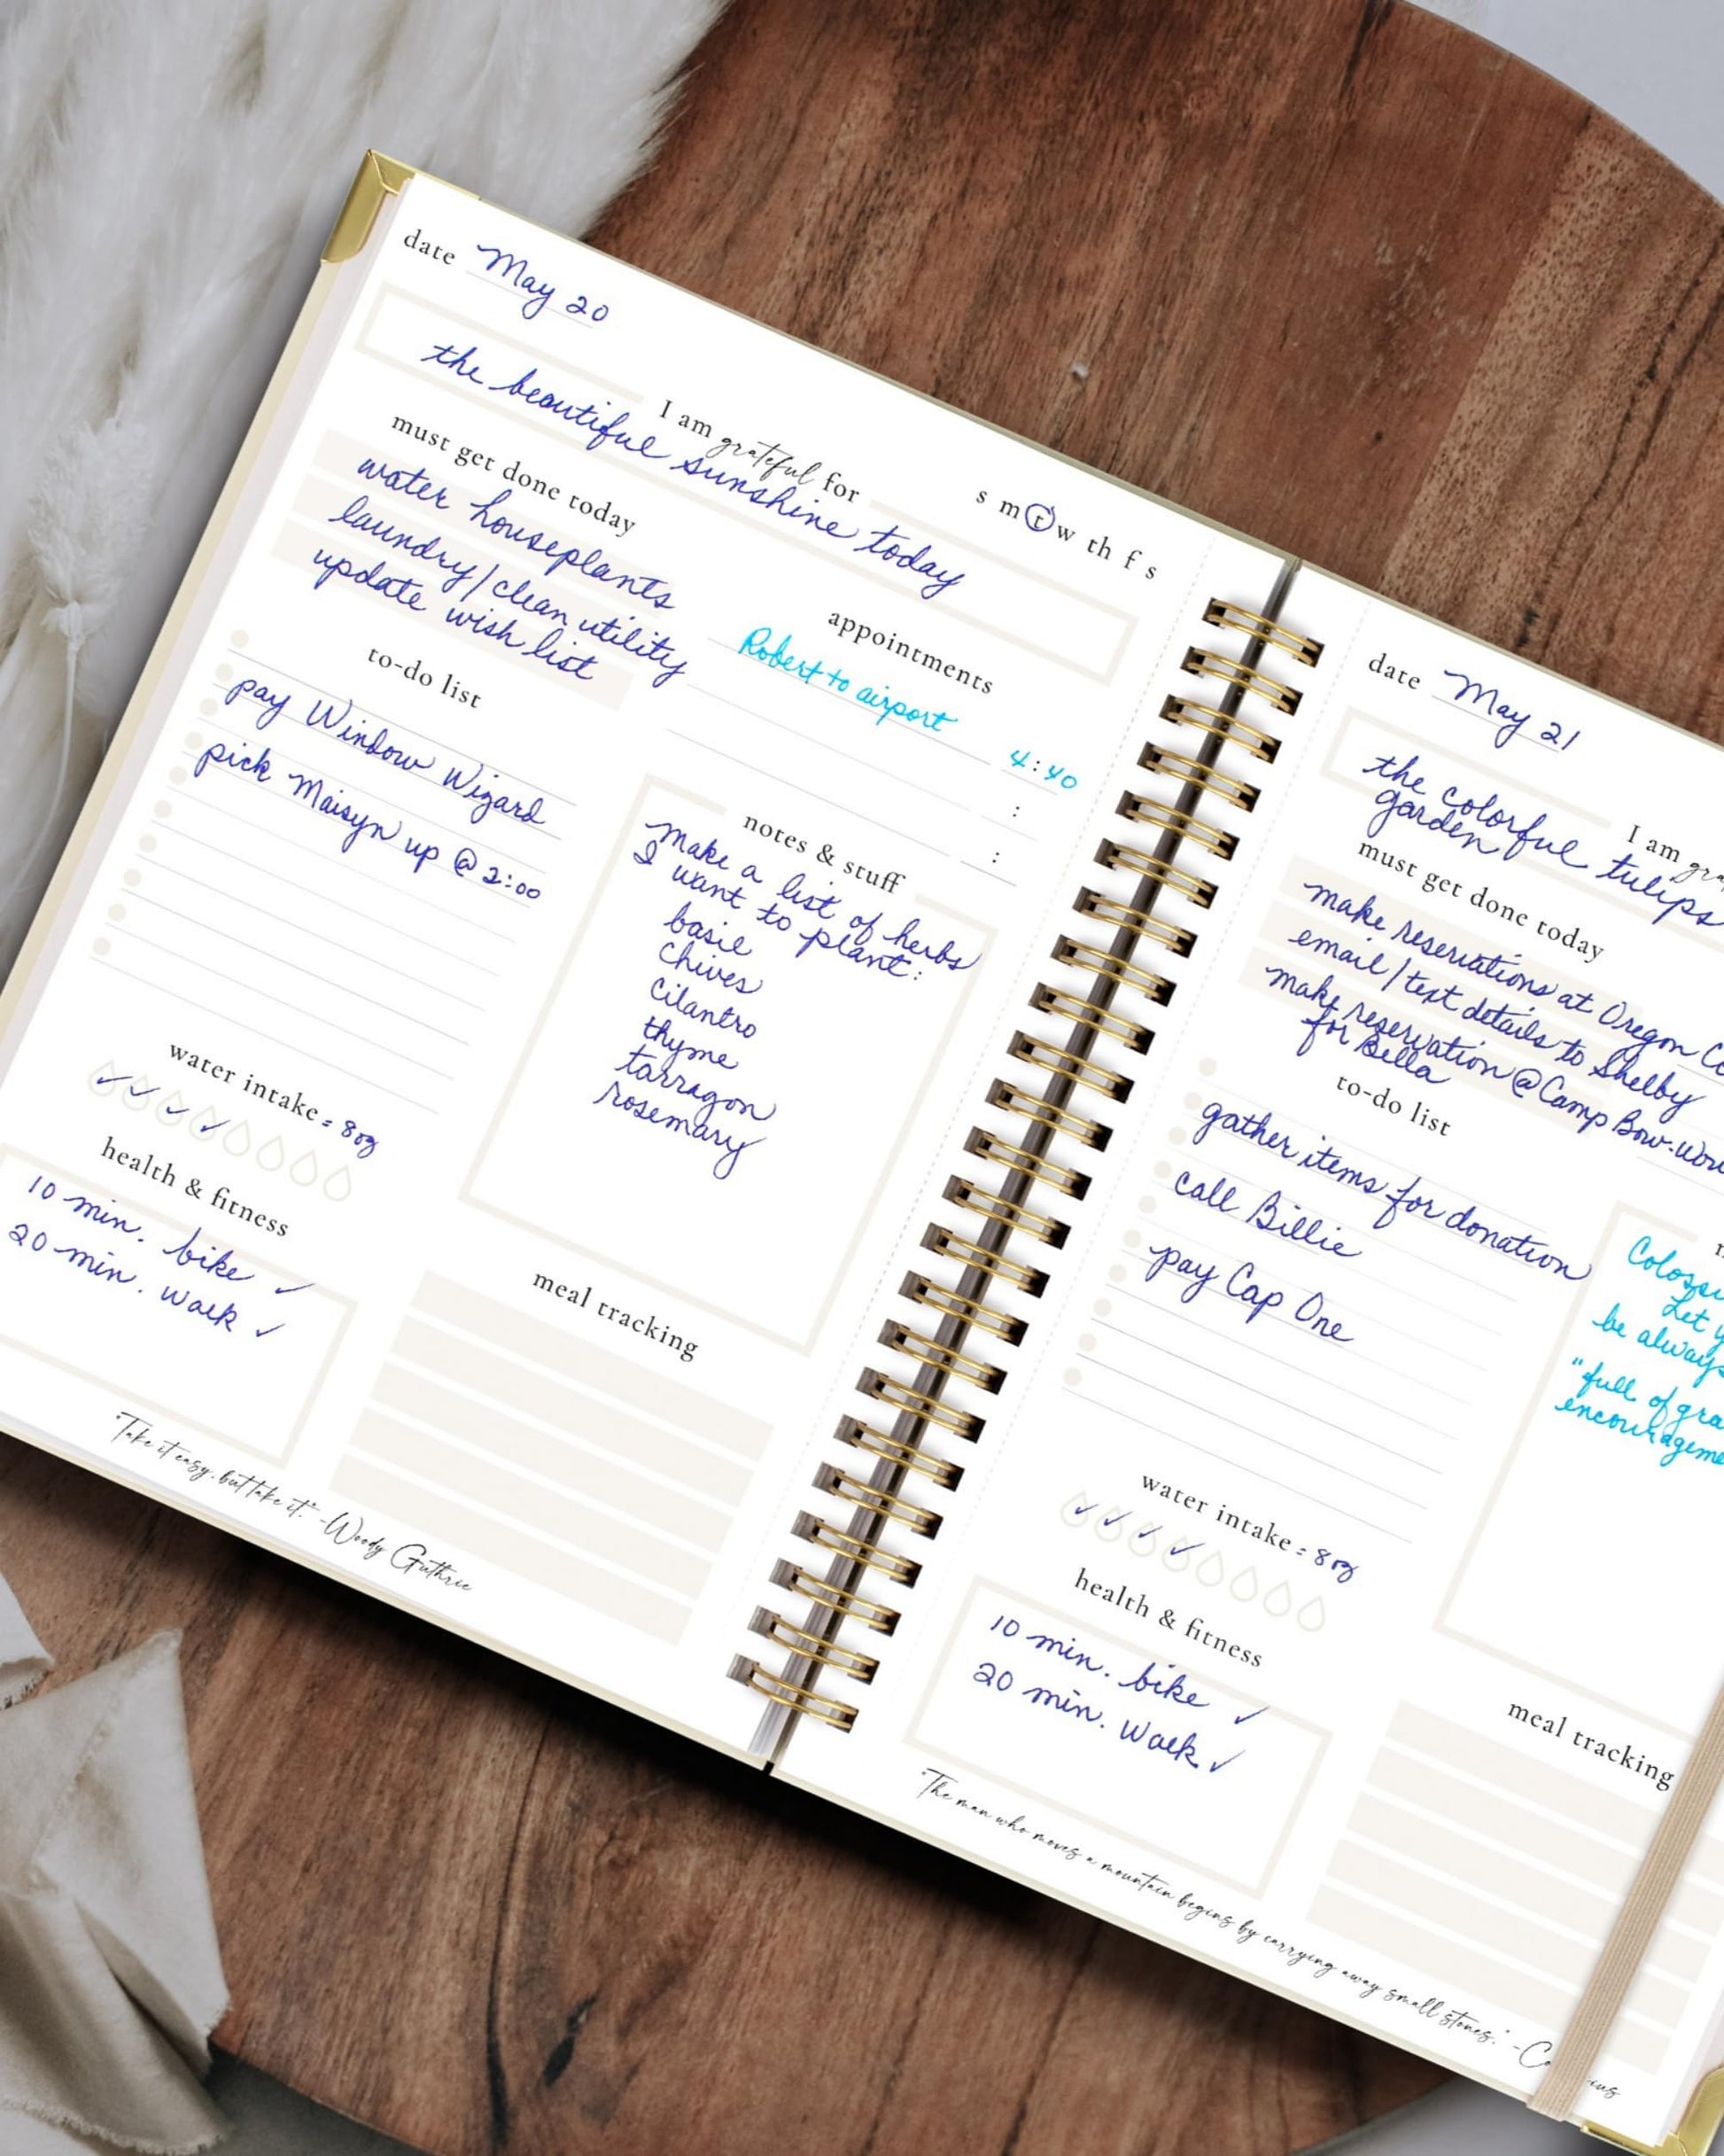 date May 20
s m t w th f s
I am grateful for
the beautiful sunshine today
must get done today
water houseplants
laundry/clean utility
update wish list
appointments
Robert to airport 4:40
:
:
to-do list
pay Window Wizard
pick Maisyn up @ 2:00
notes & stuff
Make a list of herbs
I want to plant:
basil
Chives
Cilantro
thyme
tarragon
rosemary
water intake = 8oz
health & fitness
10 min. bike ✓
20 min. walk ✓
meal tracking
"Take it easy, but take it." -Woody Guthrie
date May 21
I am
the colorful tulips
garden
must get done today
make reservations at Oregon
email/text details to Shelby
make reservation @ Camp Bow-
for Bella
to-do list
gather items for donation
call Billie
pay Cap One
Let
be always
"full of
water intake = 8oz
health & fitness
10 min. bike ✓
20 min. walk ✓
meal tracking
"The man who moves a mountain begins by carrying away small stones." -